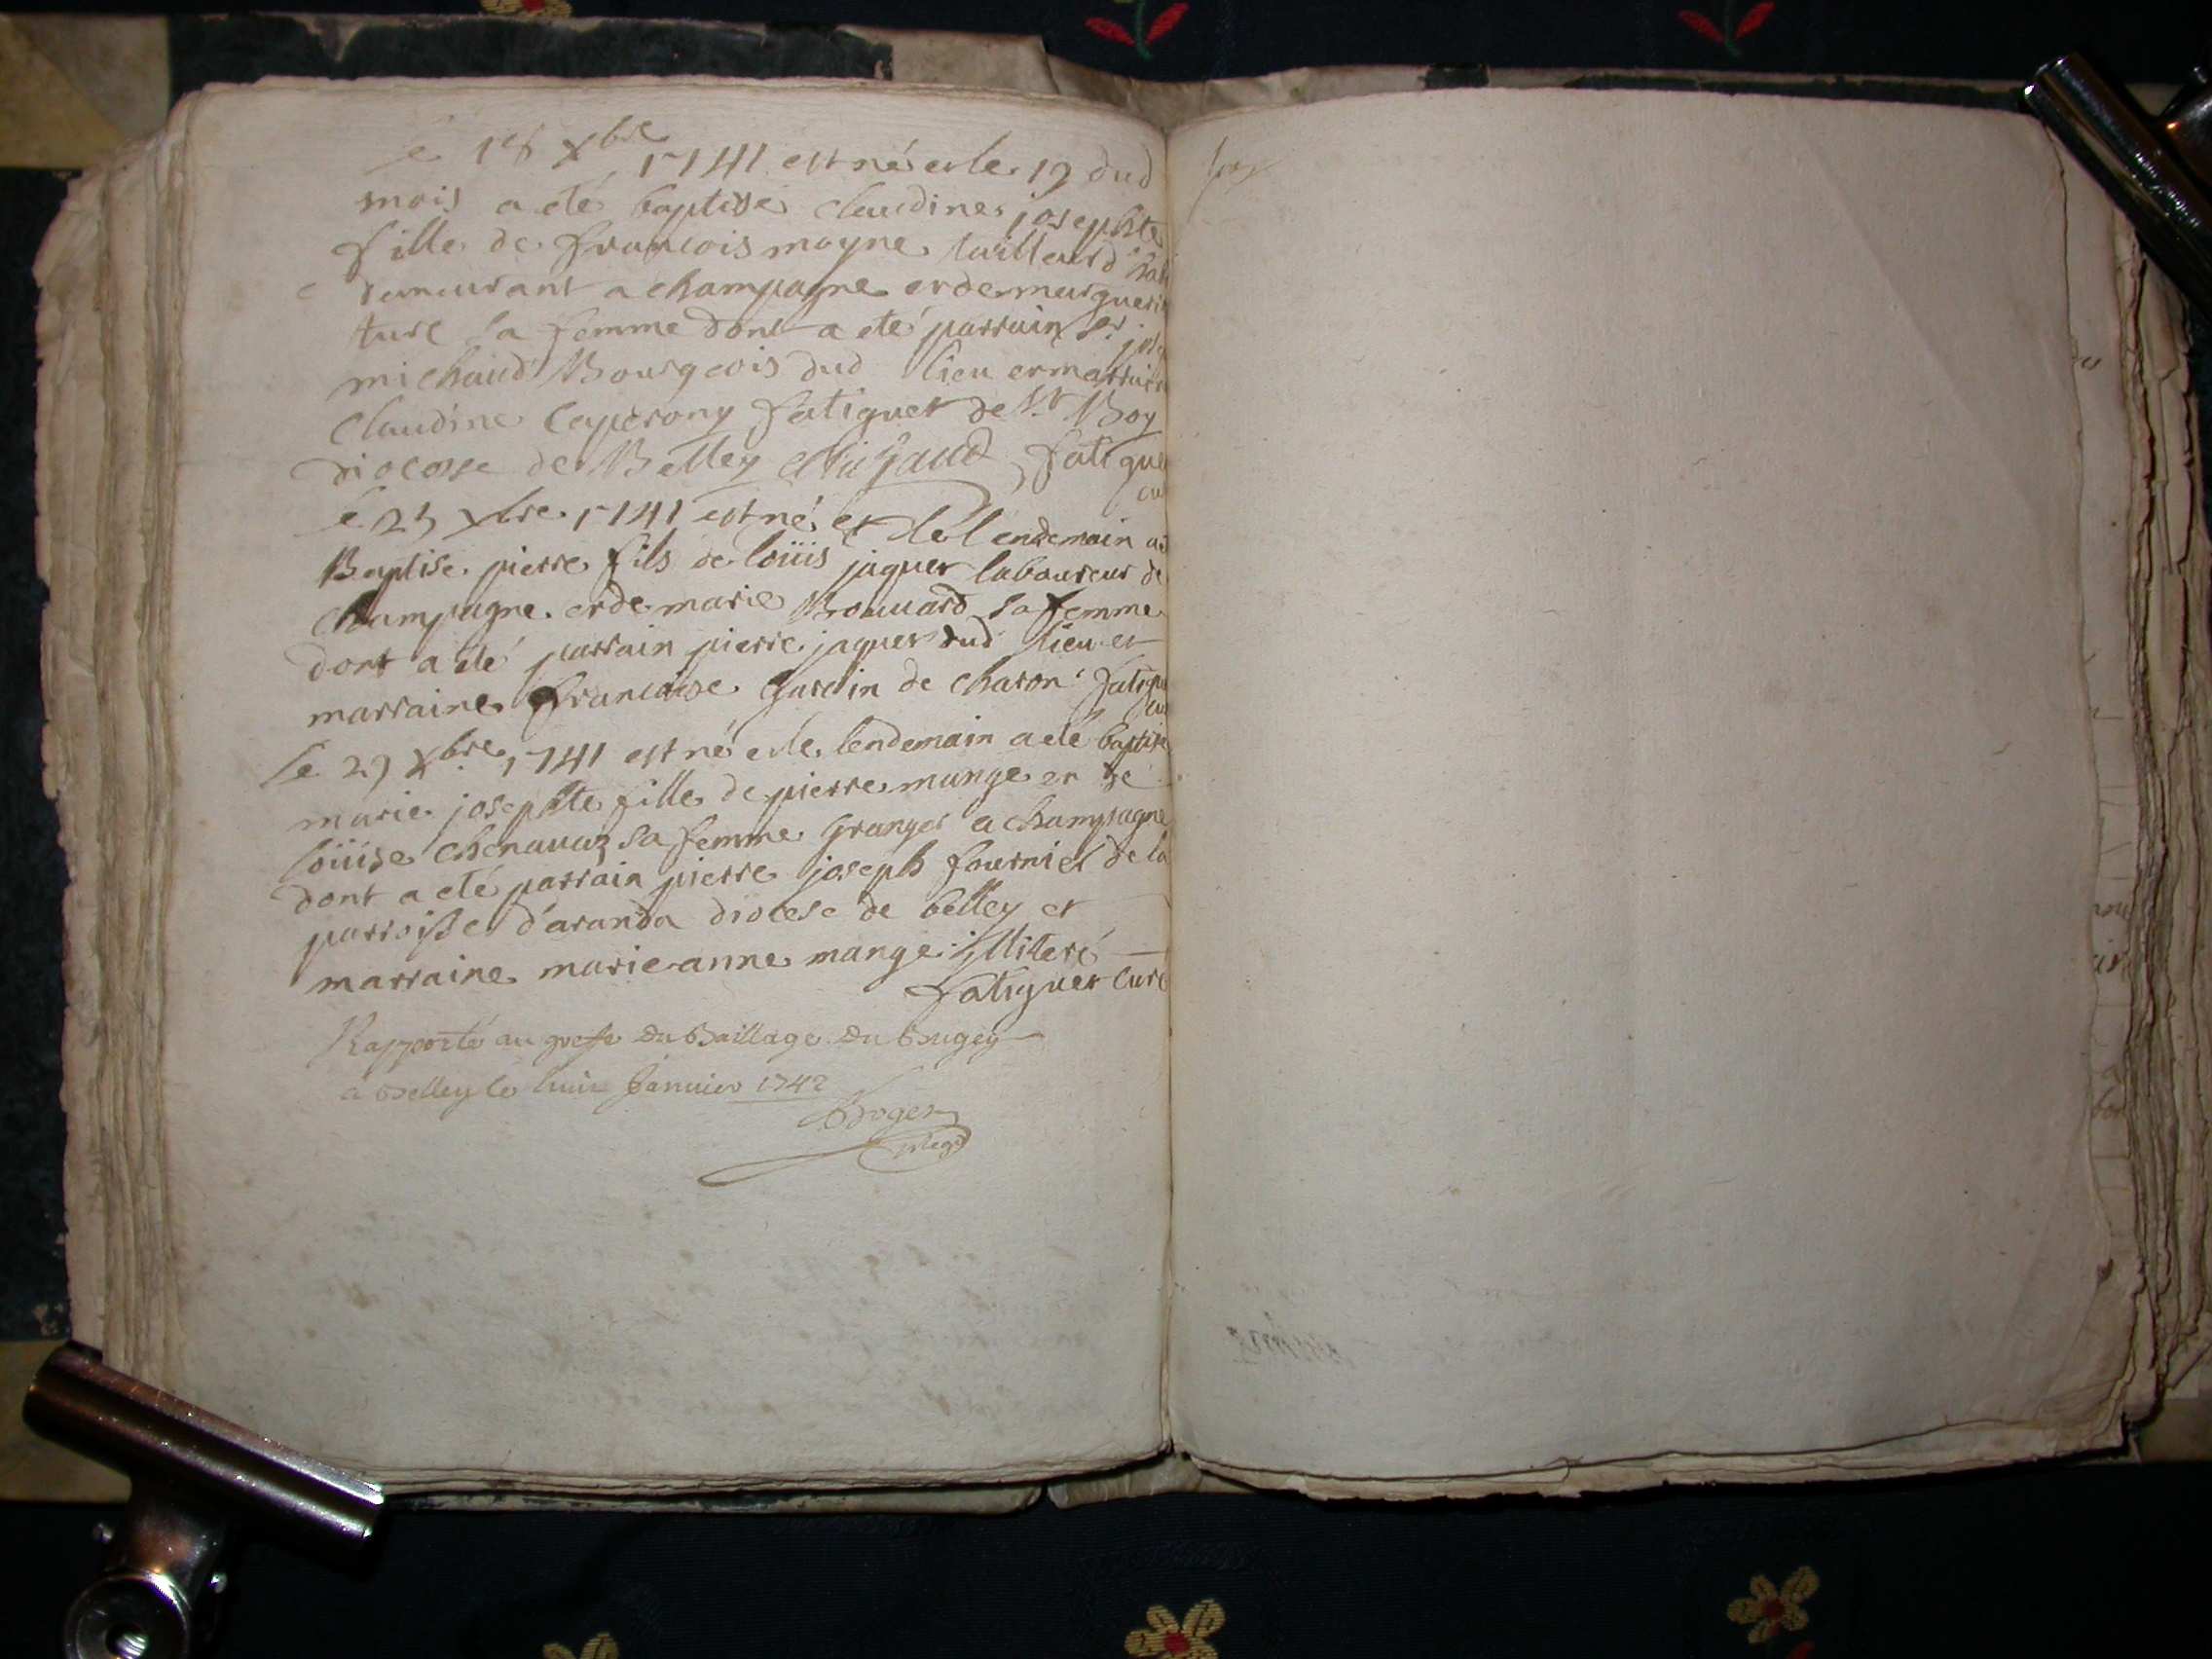 le 18 Xbre 1741 est né et le 19 dud
mois a eté baptisé claudine josephte
fille de francois moyne tailleur d'
demeurant a champagne et de
ture sa femme dont a eté parrain Sr
michaud Bourgeois dud lieu et
Claudine Caperony fatiguet de St Boy
diocesse de Belley Michaud
le 25 Xbre 1741 est né et le lendemain
Baptisé pierre fils de loüis jaquet laboureur de
champagne et de marie Brouuard sa femme
dont a été parrain pierre jaquet dud lieu et
marraine francoise Gardin de charon
le 29 Xbre 1741 est né et le lendemain a eté baptisé
marie josephte fille de pierre mange et de
loüise chenavaz sa femme Granger a champagne
dont a eté parrain pierre joseph fournier de la
parroisse d'aranda diocese de belley et
marraine marie anne mange illiteré
fatiguet curé
Rapporté au greffe du Baillage du Bugey
a Belley le huit Janvier 1742
Broger